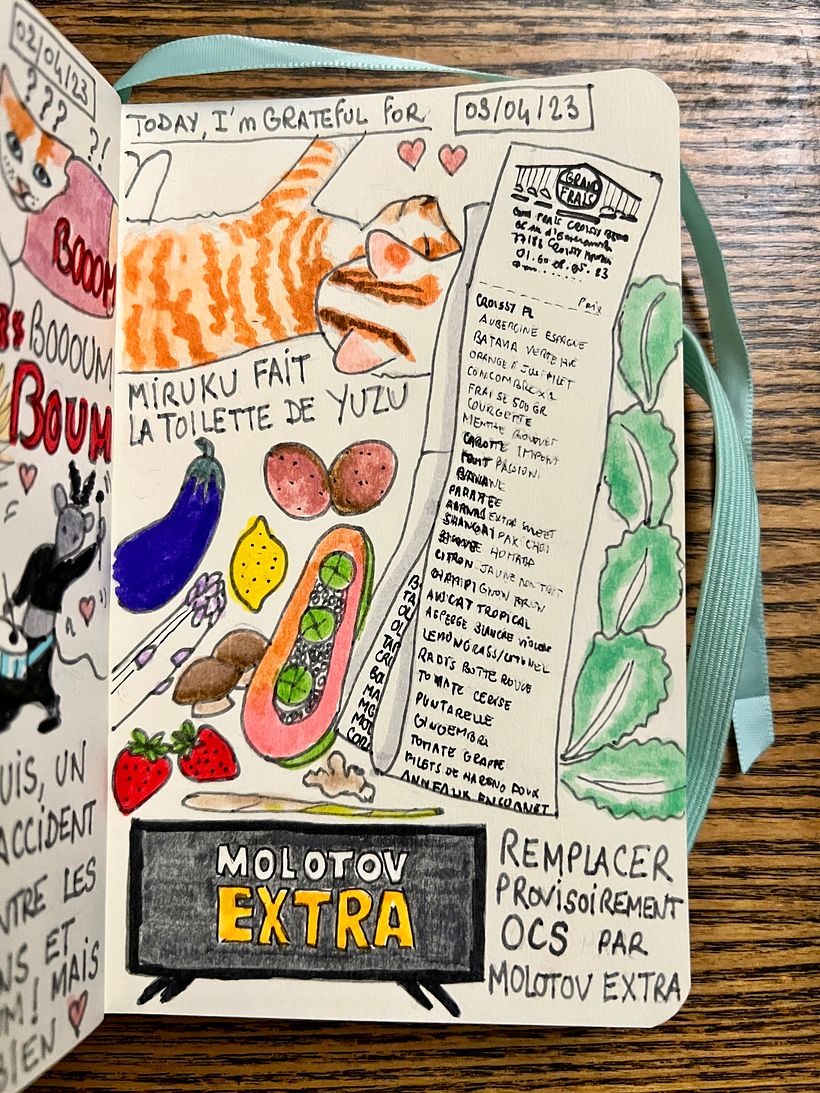 02/04/23
??? ?!
BOOOM
BOOOUM
BOUM
UIS, UN
ACCIDENT
NTRE LES
NS ET
M! MAIS
BIEN
TODAY, I'M GRATEFUL FOR
03/04/23
MIRUKU FAIT
LA TOILETTE DE YUZU
GRAND
FRAIS
01.60.
Prix
CROISSY
AUBERGINE ESPAGNE
BATAVIA VERTE
ORANGE A JUS FILET
CONCOMBRE X 2
FRAISE 500 GR
COURGETTE
MENTHE BOUQUET
CAROTTE IMPORT
FRUIT PASSION
BANANE
PAPAYE
ANANAS EXTRA SWEET
SHANGAI PAK CHOI
CITRON JAUNE NON TRAIT
CHAMPIGNON BRUN
AVOCAT TROPICAL
ASPERGE BLANCHE VIOLENE
LEMONGRASS/CITRONEL
RADIS BOTTE ROUGE
TOMATE CERISE
PUNTARELLE
GINGEMBRE
TOMATE GRAPPE
FILETS DE HARENG DOUX
ANNEAUX ENCORNET
MOLOTOV
EXTRA
REMPLACER
PROVISOIREMENT
OCS PAR
MOLOTOV EXTRA